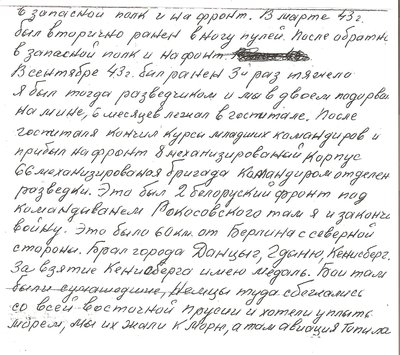 в запасной полк и на фронт. В марте 43 г.
был вторично ранен в ногу пулей. После обратно
в запасной полк и на фронт
В сентябре 43 г. был ранен 3й раз тяжело
я был тогда разведчиком и мы в двоем подорвали
на мине, 6 месяцев лежал в госпитале. После
госпиталя кончил курсы младших командиров и
прибыл на фронт 8 механизированый корпус
66 механизированая бригада командиром отделен
разведки. Это был 2 белоруский фронт под
командыванем Рокосовского там я и закончи
войну. Это было 60 км. от Берлина с северной
стороны. Брал города Данцыг, Гданю, Кенисберг.
За взятие Кенисберга имею медаль. Бои там
были сумашедшие, Немцы туда сбежались
со всей восточной Прусии и хотели уплыть
морем, мы их жали к морю, а там авиация топила